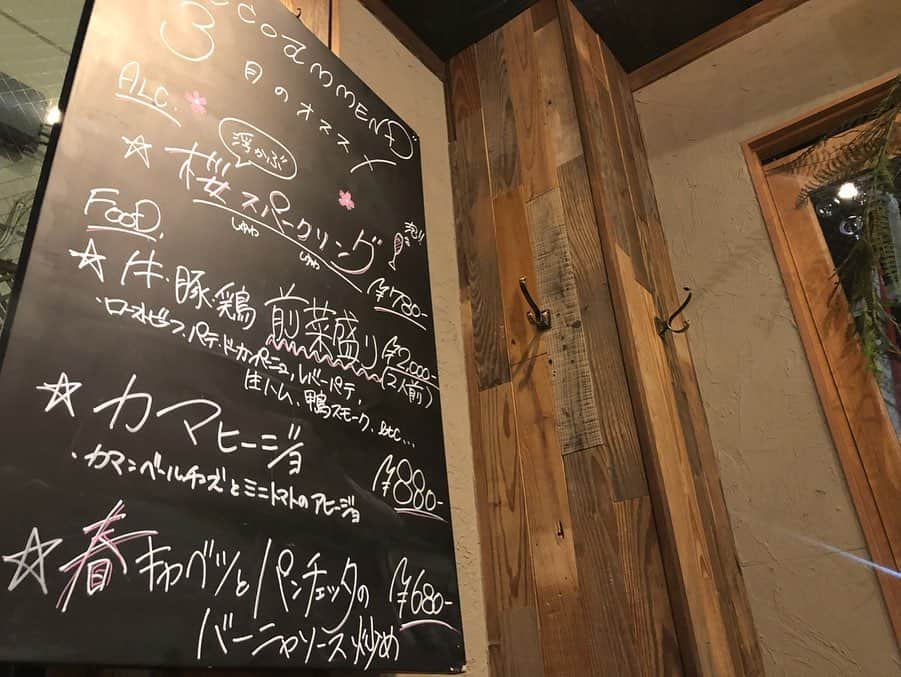 Recommend
3月のオススメ
ALC.
浮かぶ
☆桜スパークリング
しゅわ しゅわ
泡!
¥780-
FOOD.
☆牛・豚・鶏 前菜盛り ¥2,000-
(2人前)
・ローストビーフ、パテ・ド・カンパーニュ、レバーパテ、
生ハム、鴨スモーク、etc...
☆カマヒージョ
¥880-
・カマンベールチーズとミニトマトのアヒージョ
☆春キャベツとパンチェッタの
¥680-
バーニャソース炒め